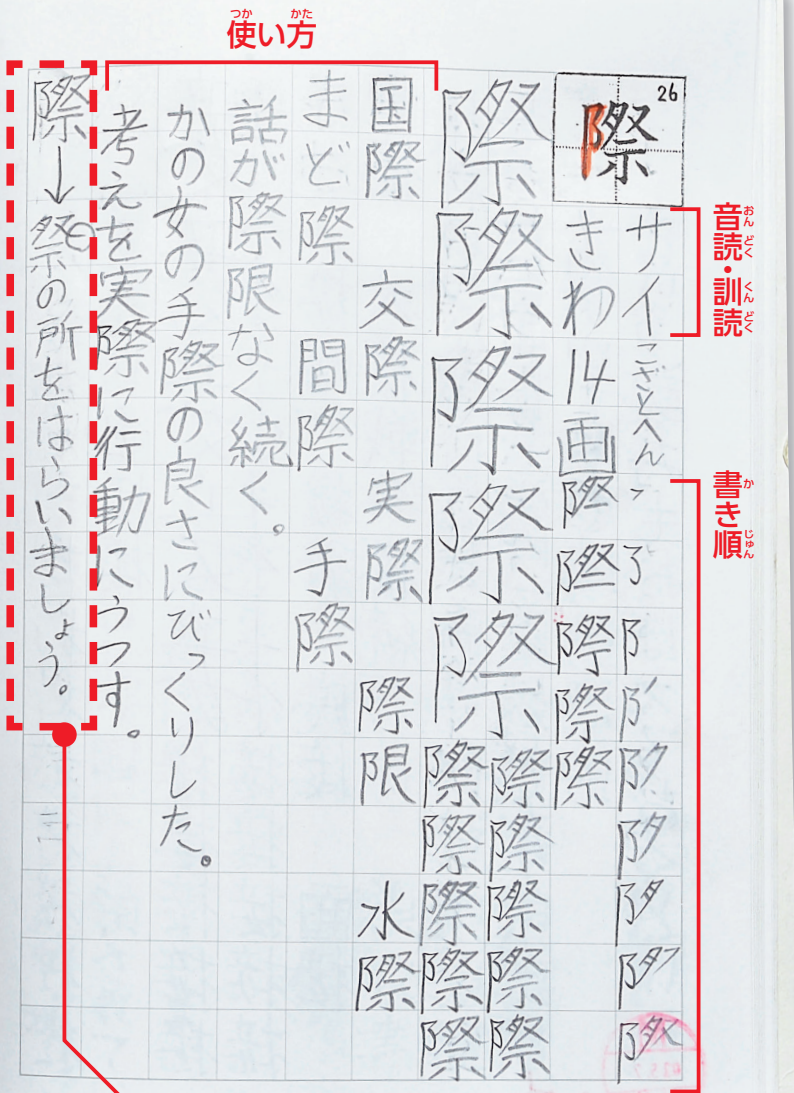 使い方
つか かた
音読・訓読
おん どく くん どく
書き順
か じゅん
26
際
サイ こざとへん
きわ 14画
際 際 際 際 際
際 際 際 際 際
際 際 際 際 際
国際 交際 実際 際限 水際
まど際 間際 手際
話が際限なく続く。
かの女の手際の良さにびっくりした。
考えを実際に行動にうつす。
際→祭の所をはらいましょう。